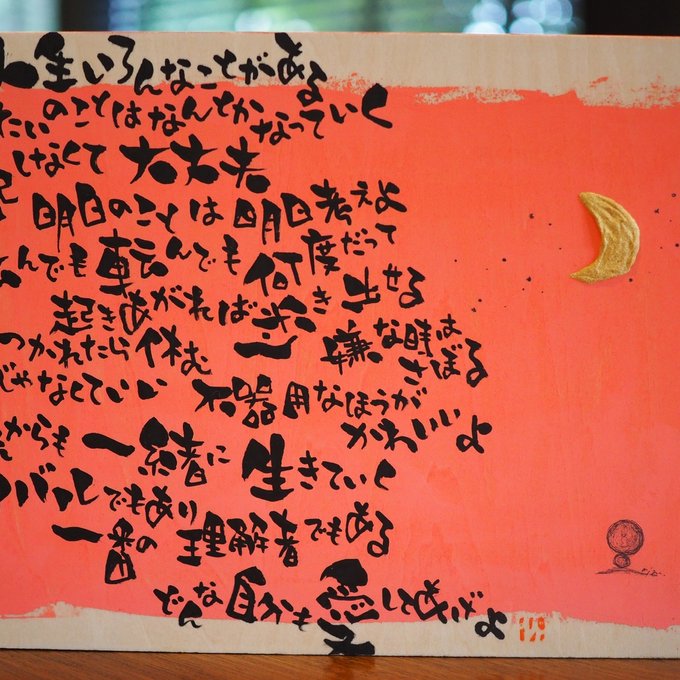 人生いろんなことがある
たいのことはなんとかなっていく
しなくて大丈夫
明日のことは明日考えよ
んでも転んでも何度だって
起きあがれば歩き出せる
つかれたら休む 嫌な時はさぼる
じゃなくていい 不器用なほうがかわいいよ
からも一緒に生きていく
バルでもあり
一番の理解者でもある
どんな自分も愛してあげよ